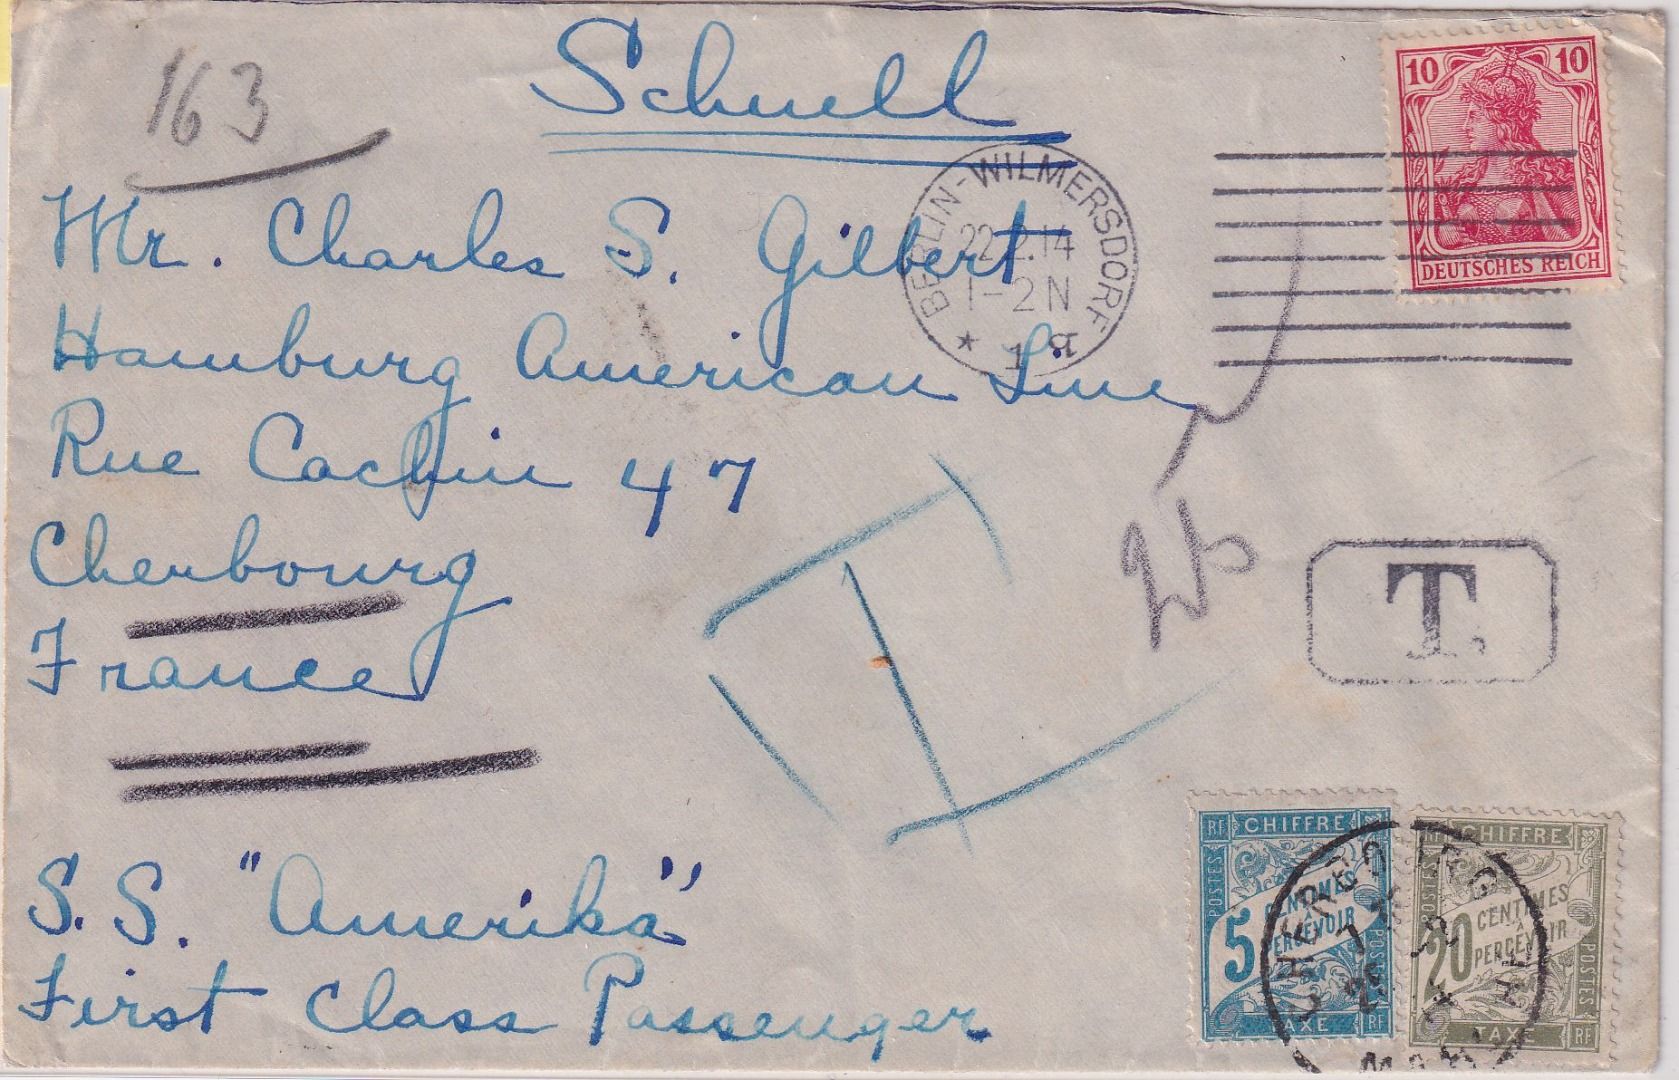 163
Schnell
10 10
DEUTSCHES REICH
BERLIN-WILMERSDORF
22.2.14
1-2N
* 1
Mr. Charles S. Gilbert
Hamburg American Line
Rue Cachin 47
Cherbourg
France
T
S.S. "Amerika"
First Class Passenger
RF CHIFFRE
POSTES
5 CENTIMES
À
PERCEVOIR
POSTES
TAXE RF
RF CHIFFRE
POSTES
20 CENTIMES
À
PERCEVOIR
POSTES
TAXE RF
CHERBOURG